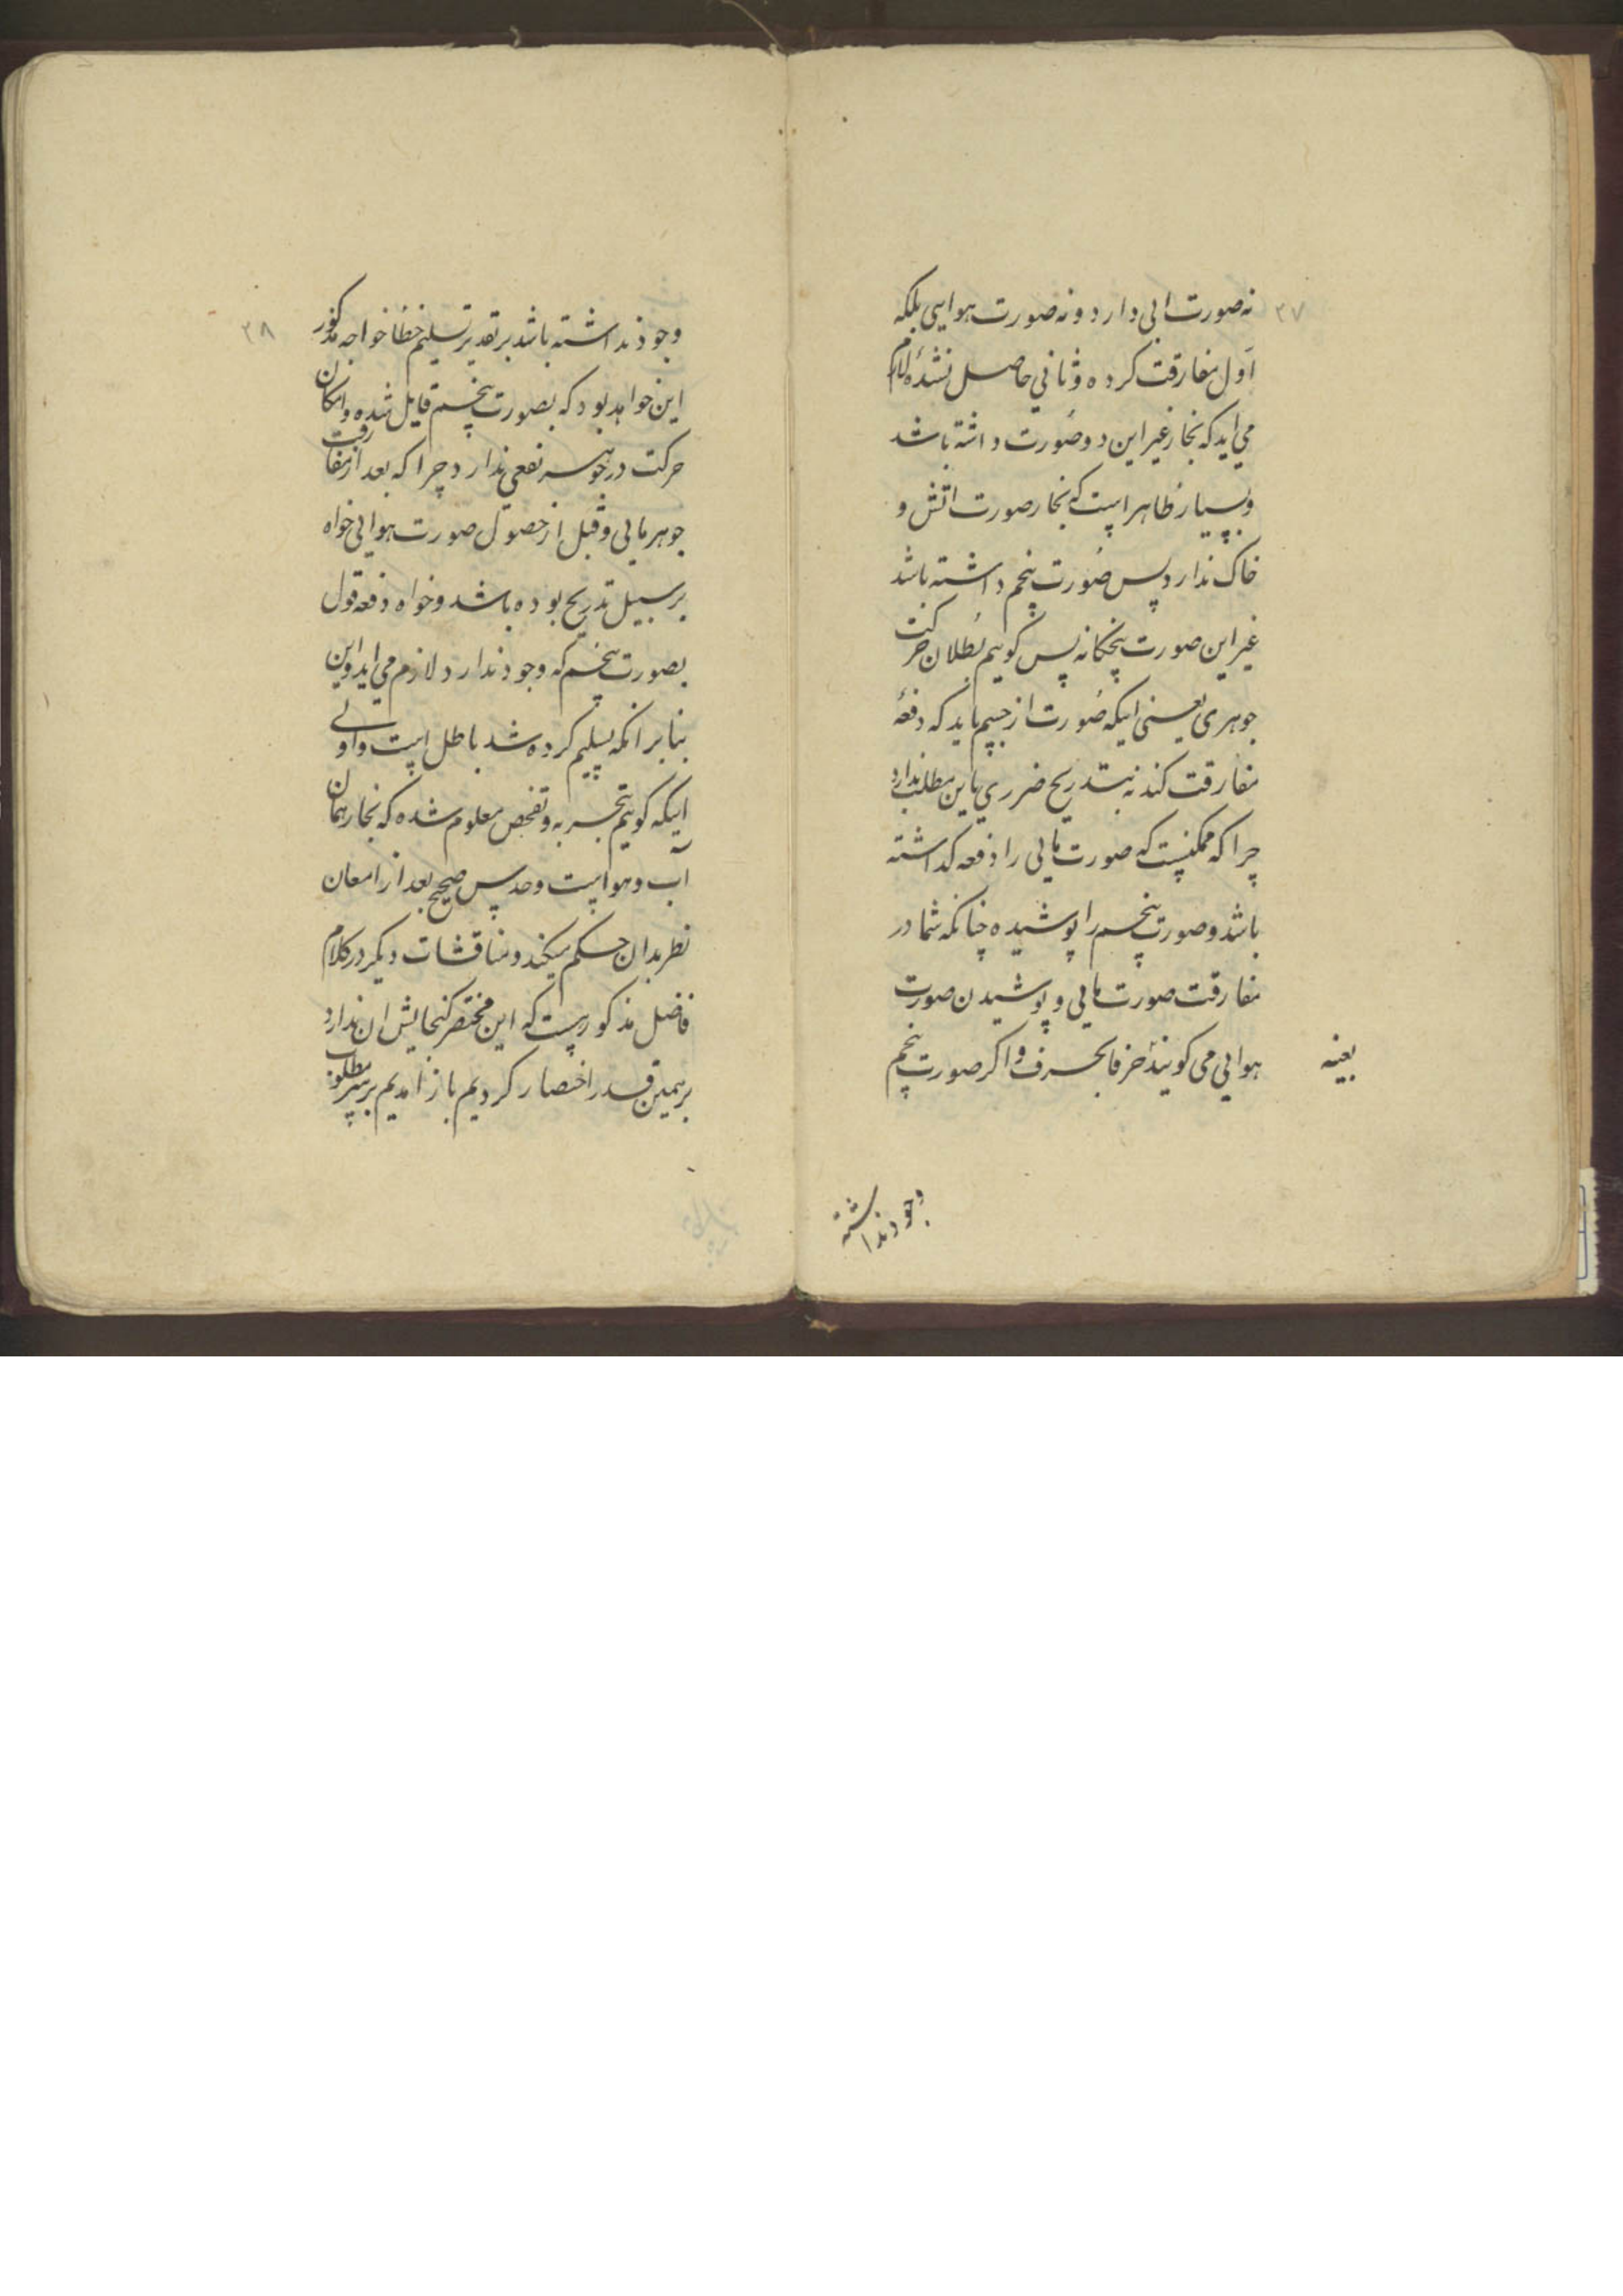 ۳۷
نه صورت ابی دارد و نه صورت هوایی بلکه
اول مفارقت کرده و ثانی حاصل نشده لازم
می اید که بخار غیر این دو صورت داشته باشد
و بسیار ظاهر است که بخار صورت اتش و
خاک ندارد پس صورت پنجم داشته باشد
غیر این صورت پنجکانه پس کوییم بطلان حرکت
جوهری یعنی اینکه صورت از جسم باید که دفعة
مفارقت کند نه بتدریج ضرری باین مطلب ندارد
چرا که ممکنست که صورت مایی را دفعه کداشته
باشد و صورت پنجم را پوشیده چنانکه شما در
مفارقت صورت مایی و پوشیدن صورت
هوایی می کویند حرفا بحرف و اکر صورت پنجم
بعینه
وجود نداشته
۳۸
وجود نداشته باشد بر تقدیر تسلیم خطا خواجه مذکور
این خواهد بود که بصورت پنجم قایل شده و امکان
حرکت در جوهر نفعی ندارد چرا که بعد از مفارقت
جوهر مایی و قبل از حصول صورت هوایی خواه
بر سبیل تدریج بوده باشد و خواه دفعه قول
بصورت پنجم که وجود ندارد لازم می اید و این
بنابر انکه تسلیم کرده شد باطل است و اولی
اینکه کوییم بتجربه و تفحص معلوم شده که بخار همان
آب و هواست و حدس صحیح بعد از امعان
نظر بدان حکم میکند و مناقشات دیکر در کلام
فاضل مذکور هست که این مختصر کنجایش ان ندارد
بر همین قدر اختصار کردیم باز امدیم بر سر مطلوب